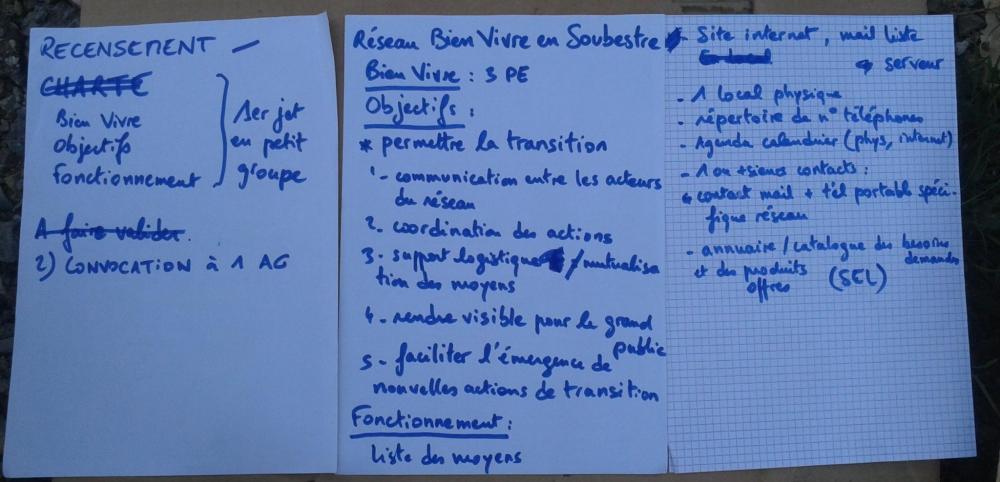 RECENSEMENT -
CHARTE
Bien Vivre
Objectifs
Fonctionnement
1er jet
en petit
groupe
A faire valider.
2) CONVOCATION à 1 AG
Réseau Bien Vivre en Soubestre
Bien Vivre : 3 PE
Objectifs :
* permettre la transition
1- communication entre les acteurs
du réseau
2. coordination des actions
3- support logistique / mutualisa
tion des moyens
4- rendre visible pour le grand
public
5- faciliter l'émergence de
nouvelles actions de transition
Fonctionnement :
Liste des moyens
- Site internet, mail liste
En local
↳ serveur
- 1 local physique
- répertoire de n° téléphones
- Agenda calendrier (phys, internet)
- 1 ou +sieurs contacts :
↳ contact mail + tél portable spéci-
fique réseau
- annuaire / catalogue des besoins
demandes
et des produits
offres
(SEL)